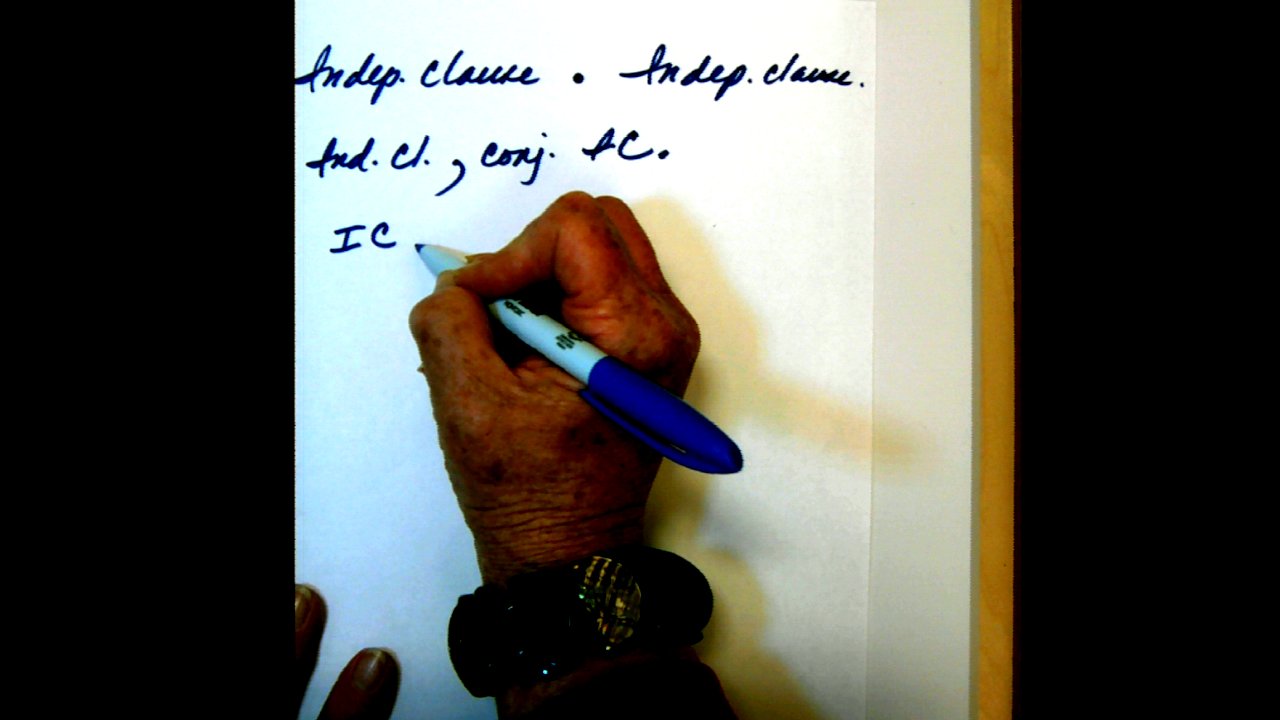 Indep. clause . Indep. clause.
Ind. cl. , conj. IC.
IC